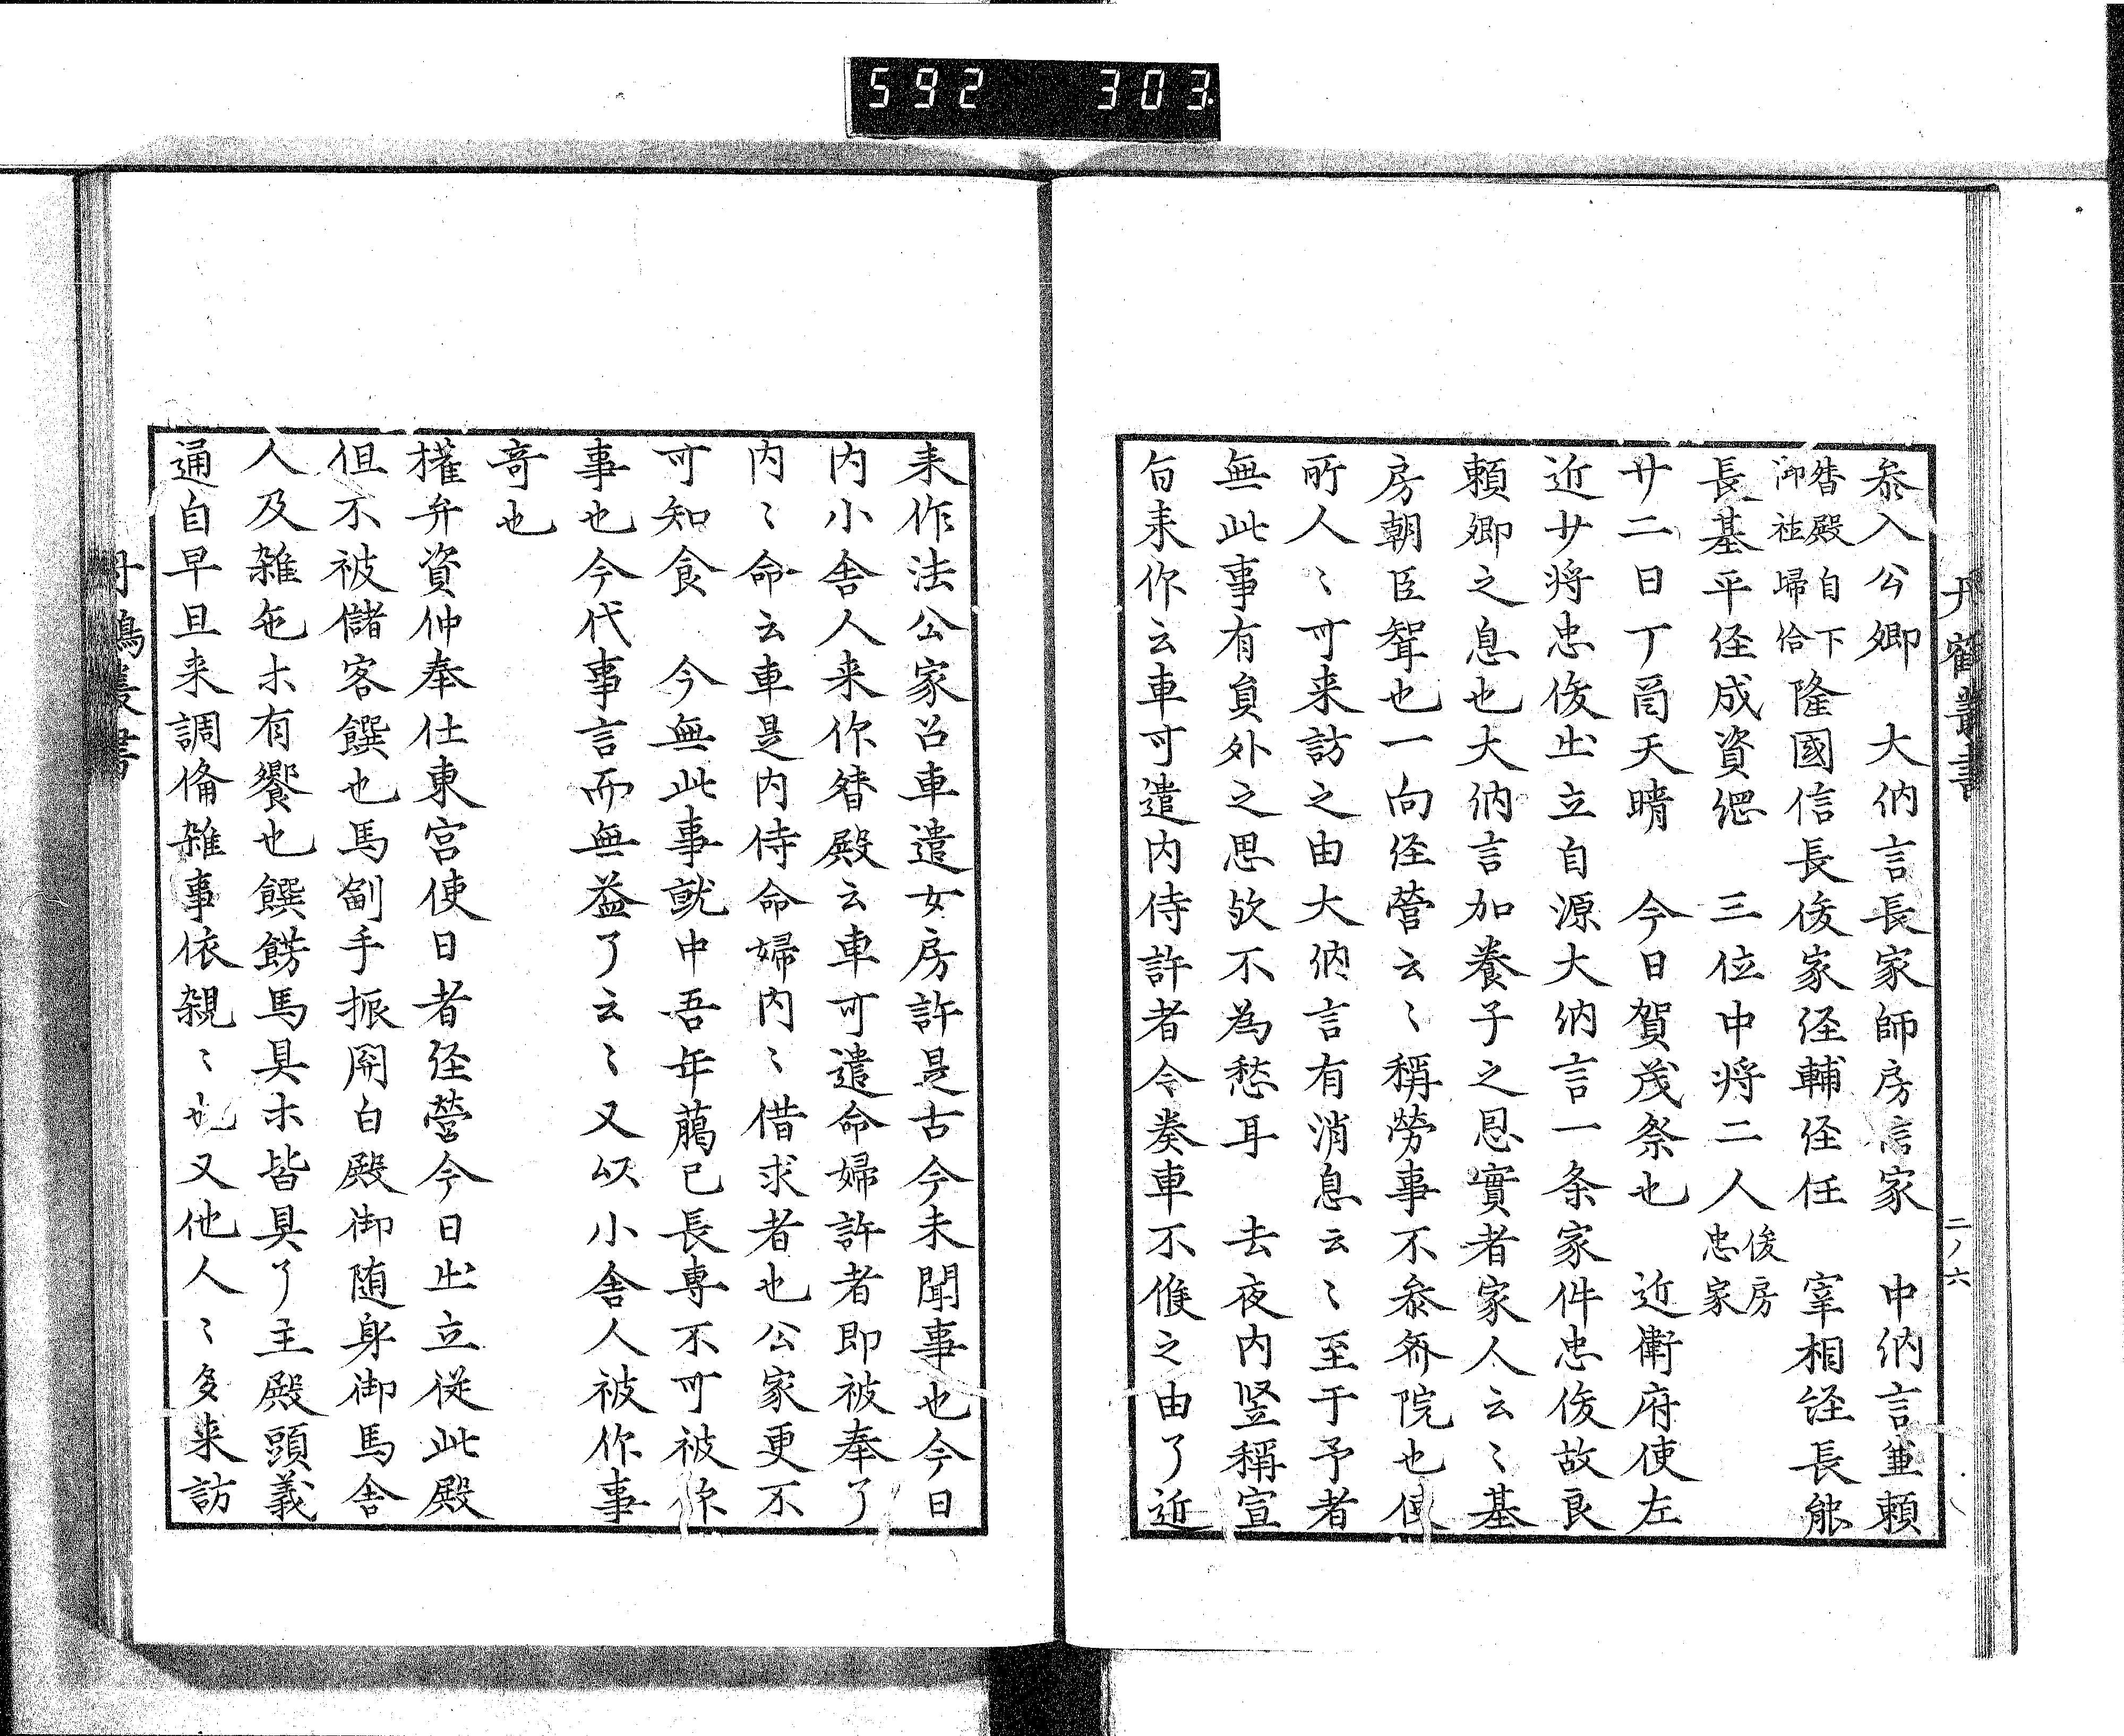 592 303
丹鶴叢書
二ノ六
参入公卿 大納言長家師房信家 中納言兼頼
督殿自下御社帰給隆國信長俊家経輔経任 宰相経長能
長基平経成資綱 三位中将二人俊房忠家
廿二日丁酉天晴 今日賀茂祭也 近衛府使左
近少将忠俊出立自源大納言一条家件忠俊故良
頼卿之息也大納言加養子之恩實者家人云〻基
房朝臣聟也一向経営云〻稱勞事不参斎院也使
所人〻可来訪之由大納言有消息云〻至于予者
無此事有員外之思欤不為愁耳 去夜内竪稱宣
旨来作云車可遣内侍許者令奏車不候之由了近
来作法公家召車遣女房許是古今未聞事也今日
内小舎人来作督殿云車可遣命婦許者即被奉了
内〻命云車是内侍命婦内〻借求者也公家更不
可知食 今無此事就中吾年﨟已長専不可被作
事也今代事言而無益了云〻又以小舎人被作事
奇也
権弁資仲奉仕東宮使日者経営今日出立従此殿
但不被儲客饌也馬副手振関白殿御随身御馬舎
人及雑色木有饗也饌餝馬具木皆具了主殿頭義
通自早旦来調備雑事依親〻也又他人〻多来訪
丹鶴叢書